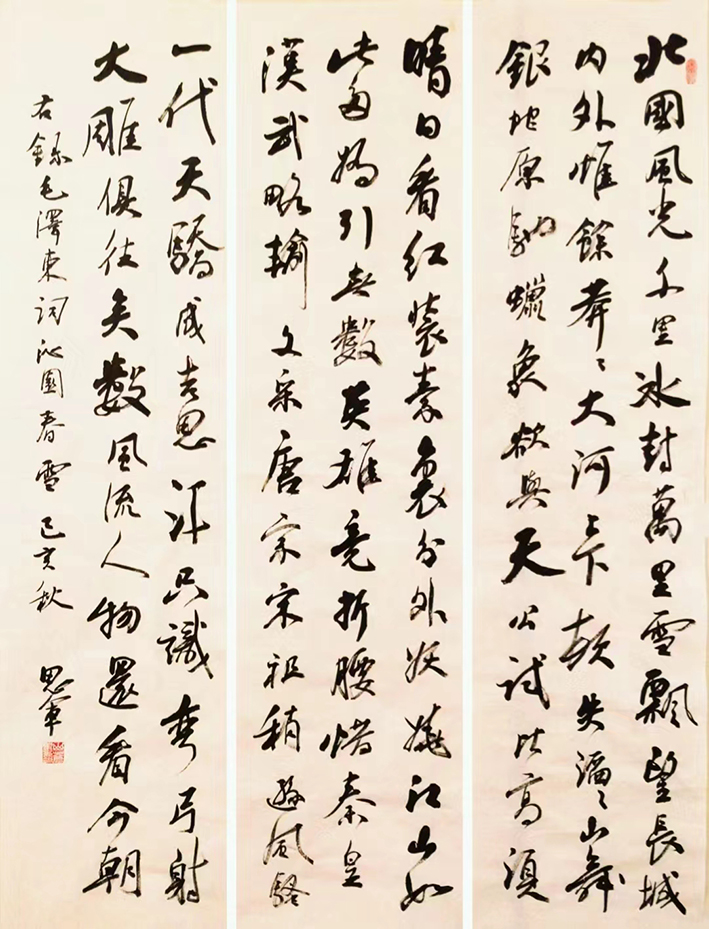 北國風光千里冰封萬里雪飄望長城
内外惟餘莽〻大河上下頓失滔〻山舞
銀蛇原馳蠟象欲與天公試比高須
晴日看红裝素裹分外妖嬈江山如
此多嬌引無數英雄竞折腰惜秦皇
漢武略輸文采唐宗宋祖稍遜風騷
一代天驕成吉思汗只識弯弓射
大雕俱往矣數風流人物還看今朝
右錄毛澤東詞沁園春雪 己亥秋 思軍